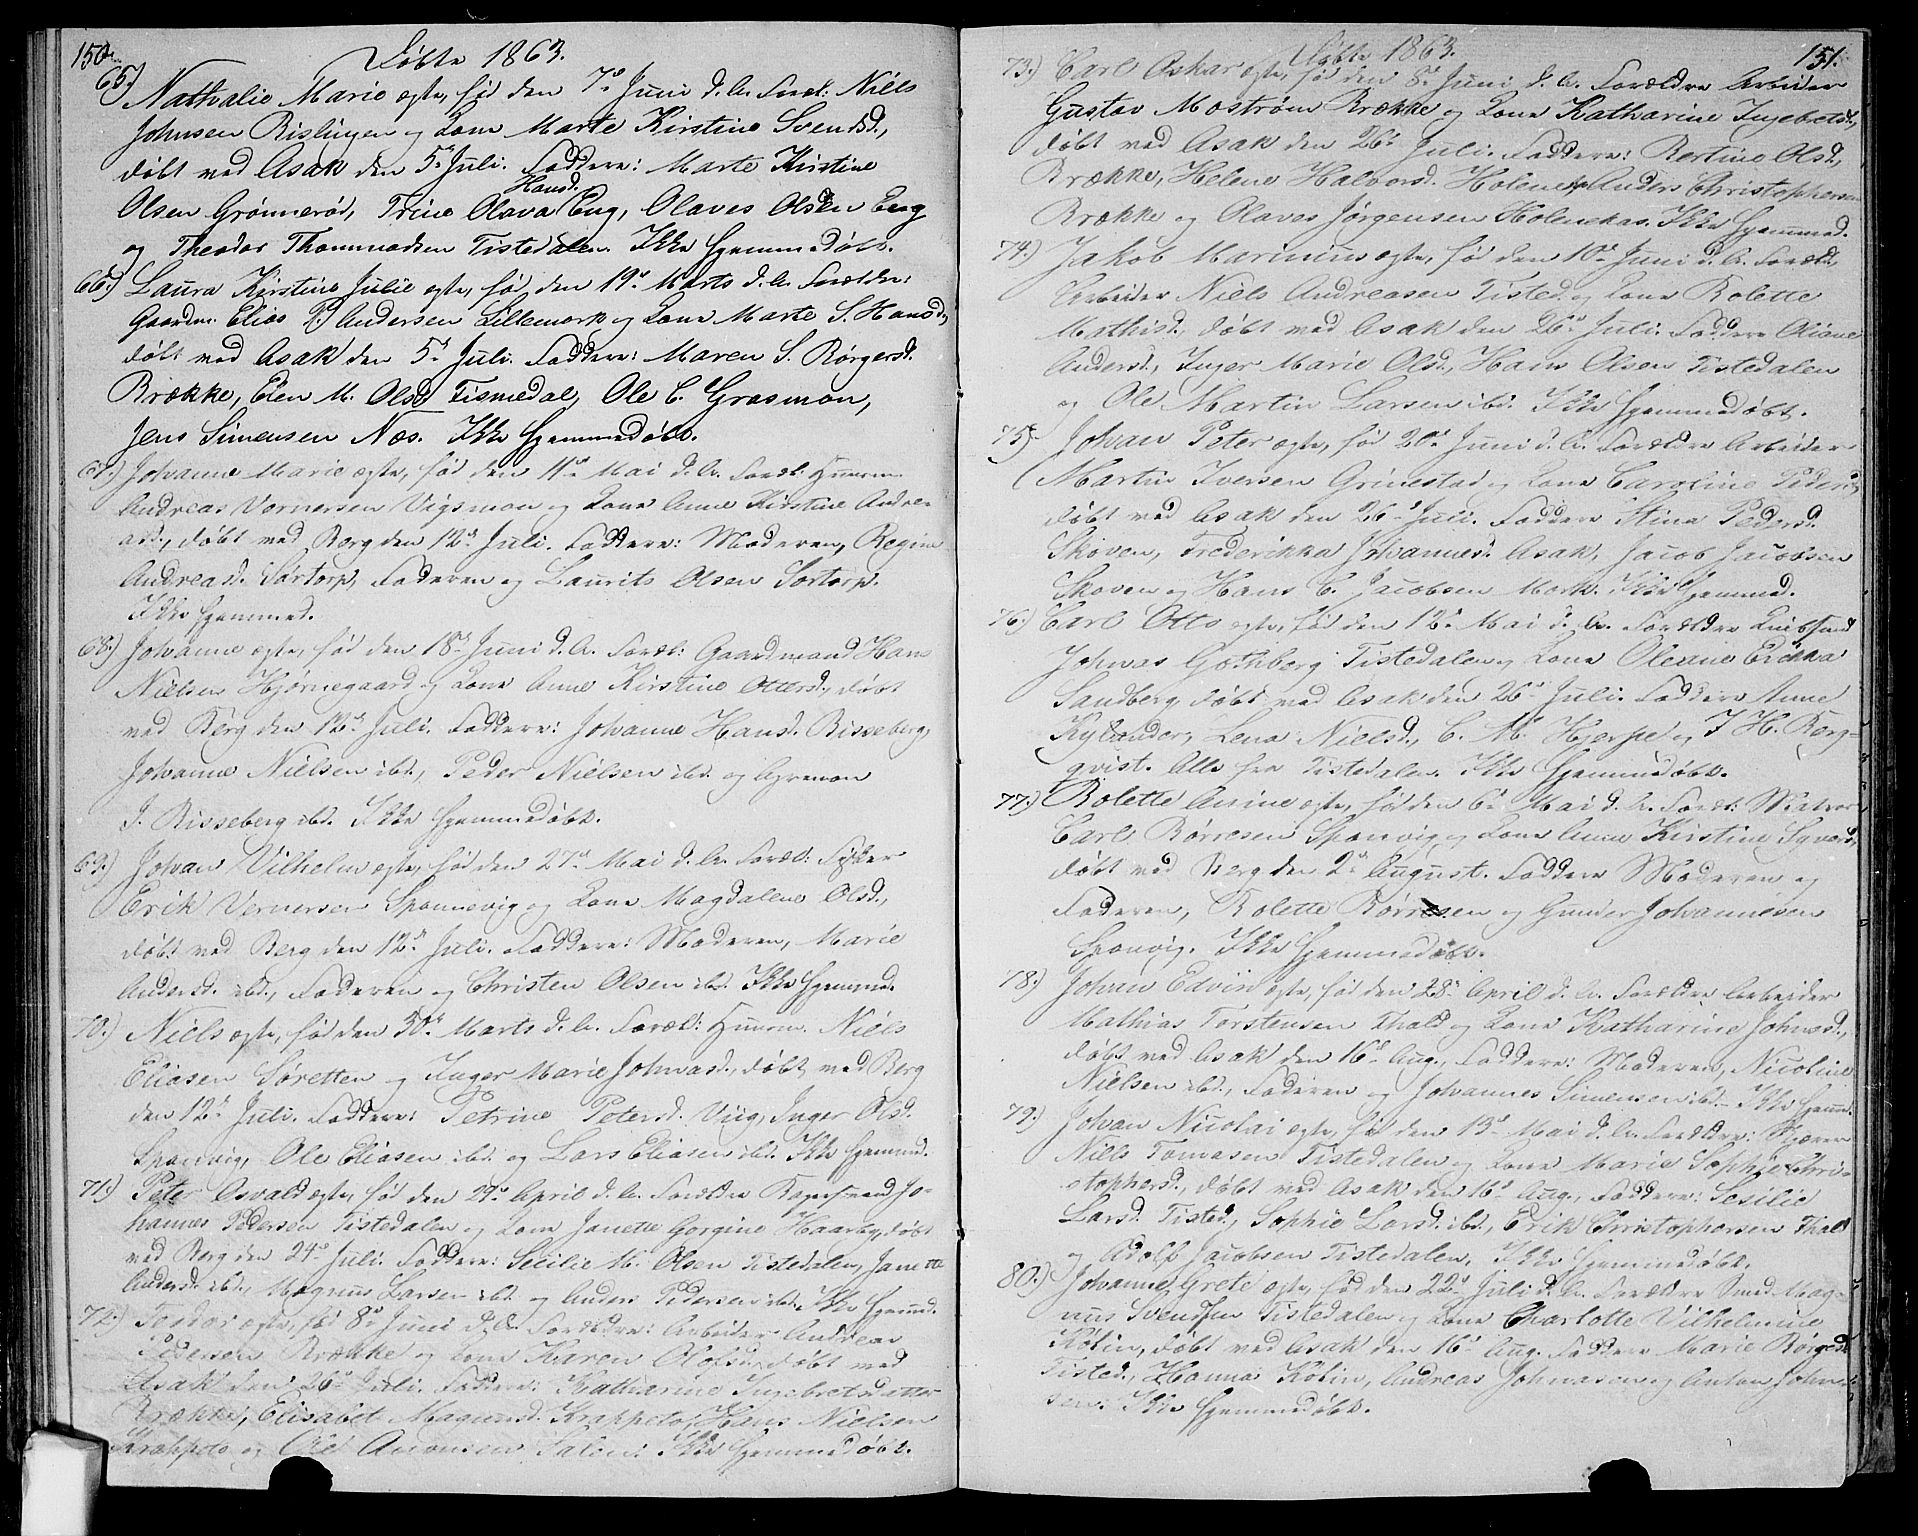 150.
Døbte 1863.
65.) Nathalie Marie ægte, fød den 7de Juni d. A. Foræl: Niels
Johnsen Rislingen og Kone Marte Kirstine Svendsd.,
døbt ved Asak den 5te Juli. Faddere: Marte Kirstine
Hansd.
Olsen Grønnerød, Trine Olava Eng, Olaves Olsen Eng
og Theodor Thommadsen Tistedalen. Ikke hjemmedøbt.
66.) Laura Kirstine Julie ægte, fød den 19de Marts d. A. Forældre:
Gaardm. Elias P. Andersen Lillemork og Kone Marte S. Hansd.,
døbt ved Asak den 5te Juli. Faddere: Maren S. Børgersd.
Brække, Elen M. Olsd. Tismedal, Ole C. Grasmon,
Jens Simensen Næs. Ikke hjemmedøbt.
67.) Johanne Marie ægte, fød den 11te Mai d. A. Foræl: Huusm.
Andreas Vernersen Vigsmon og Kone Anne Kirstine Andre-
asd., døbt ved Berg den 12te Juli. Faddere: Moderen, Regine
Andreasd. Sørtorp, Faderen og Laurits Olsen Sørtorp.
Ikke hjemmed.
68.) Johanne ægte, fød den 18de Juni d. A. Foræl: Gaardmand Hans
Nielsen Hjørnegaard og Kone Anne Kirstine Ottersd., døbt
ved Berg den 12te Juli. Faddere: Johanne Hansd. Bisseberg,
Johanne Nielsen ibd., Peder Nielsen ibd. og Gremon
J. Bisseberg ibd. Ikke hjemmedøbt.
69.) Johan Vilhelm ægte, fød den 27de Mai d. A. Foræl: Fisker
Erik Vernersen Sponnevig og Kone Magdalene Olsd.,
døbt ved Berg den 12te Juli. Faddere: Moderen, Marie
Andersd. ibd., Faderen og Christen Olsen ibd. Ikke hjemmed.
70.) Niels ægte, fød den 30te Marts d. A. Foræl: Huusm. Niels
Eliasen Søretten og Inger Marie Johnasd., døbt ved Berg
den 12te Juli. Faddere: Petrine Petersd. Viig, Inger Olsd.
Sponvig, Ole Eliasen ibd. og Lars Eliasen ibd. Ikke hjemmd.
71.) Peter Osvald ægte, fød den 29de April d. A. Forældre Kopersmed Jo-
hannes Pedersen Tistedalen og Kone Janette Gorgine Haarby, døbt
ved Berg den 24de Juli. Faddere: Secilie M. Olsen Tistedalen, Janette
Andersd. ibd., Magnus Larsen ibd. og Anders Pedersen ibd. Ikke hjemmd.
72.) Teodor ægte, fød 8de Juni d. A. Forældre: Arbeider Andreas
Pedersen Brække og Kone Karen Olofsd., døbt ved
Asak den 26de Juli. Faddere: Katharine Ingebretsdatter
Brække, Elisabet Magnusd. Krappeto, Hans Nielsen
Krappeto og Ole Aronsen Salin: Ikke hjemmedøbt.
151.
Døbte 1863.
73.) Carl Oskar ægte, fød den 8de Juni d. A. Forældre Arbeider
Gustav Mostrøm Brække og Kone Katharine Ingebretsd.,
døbt ved Asak den 26de Juli. Faddere: Bertine Olsd.
Brække, Helene Halvorsd. Holenek, Anders Christophersen
Brække og Olaves Jørgensen Holenekas. Ikke hjemmed.
74.) Jakob Marinius ægte, fød den 10de Juni d. A. Foræld.
Arbeider Niels Andreasen Tisted. og Kone Bolette
Mathisd., døbt ved Asak den 26de Juli. Faddere Oliane
Andersd., Inger Marie Olsd., Hans Olsen Tistedalen
og Ole Martin Larsen ibd. Ikke hjemmedøbt.
75.) Johan Peter ægte, fød 20de Juni d. A. Forældre Arbeider
Martin Iversen Grimestad og Kone Caroline Pedersd.,
døbt ved Asak den 26de Juli. Faddere Stina Pedersd.
Skoven, Frederikka Johannesd. Asak, Jacob Jacobsen
Skoven og Hans C. Jacobsen Mork. Ikke hjemmed.
76.) Carl Otto ægte, fød den 12te Mai d. A. Forældre
Johnas Gothberg Tistedalen og Kone Oleane Erikka
Sandberg, døbt ved Asak den 26de Juli. Faddere Anne
Kylander, Lena Nielsd., C. M. Hjerpe og J. H. Berg-
qvist. Alle fra Tistedalen. Ikke hjemmedøbt.
77.) Bolette Anine ægte, fød den 6te Mai d. A. Foræl: Matros
Carl Børresen Sponvig og Kone Anne Kirstine Syversd.,
døbt ved Berg den 2de August. Faddere Moderen og
Faderen, Bolette Børresen og Gunder Johannesen
Sponvig. Ikke hjemmedøbt.
78.) Johan Edvin ægte, fød den 28de April d. A. Forældre Arbeider
Mathias Torstensen Thold og Kone Katharine Johnsd.,
døbt ved Asak den 16de Aug., Faddere: Moderen, Nicoline
Nielsen ibd., Faderen og Johannes Simensen ibd. Ikke hjemmd.
79.) Johan Nicolai ægte, fød den 13de Mai d. A. Forældre: Skjærer
Niels Tomasen Tistedalen og Kone Marie Sophie Chri-
stophersd., døbt ved Asak den 16de Aug., Faddere: Secilie
Larsd. Tisted., Sophie Larsd. ibd., Erik Christophersen Thold
og Adolf Jacobsen Tistedalen. Ikke hjemmedøbt.
80.) Johanne Grete ægte, fød den 22de Juli d. A. Forældre Smed Mag-
nus Svendsen Tistedalen og Kone Charlotte Vilhelmine
Kølin, døbt ved Asak den 16de Aug. Faddere Marie Børgesd.
Tisted., Hanna Kølin, Andreas Johnasen og Anton Johan-
sen. Ikke hjemmedøbt.